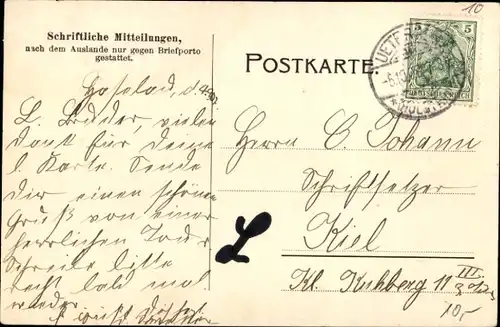 10
Schriftliche Mitteilungen,
nach dem Auslande nur gegen Briefporto
gestattet.
POSTKARTE
5 5
L. Bruder, vielen
Dank für Deine
l. Karte. Sende
Dir einen schönen
Gruß von einer
herrlichen Tour
Schreibe bitte
recht bald mal
wieder.
Herrn C. Johann
Schriftsetzer
Kiel
Kl. Kuhberg 11 III
10,-